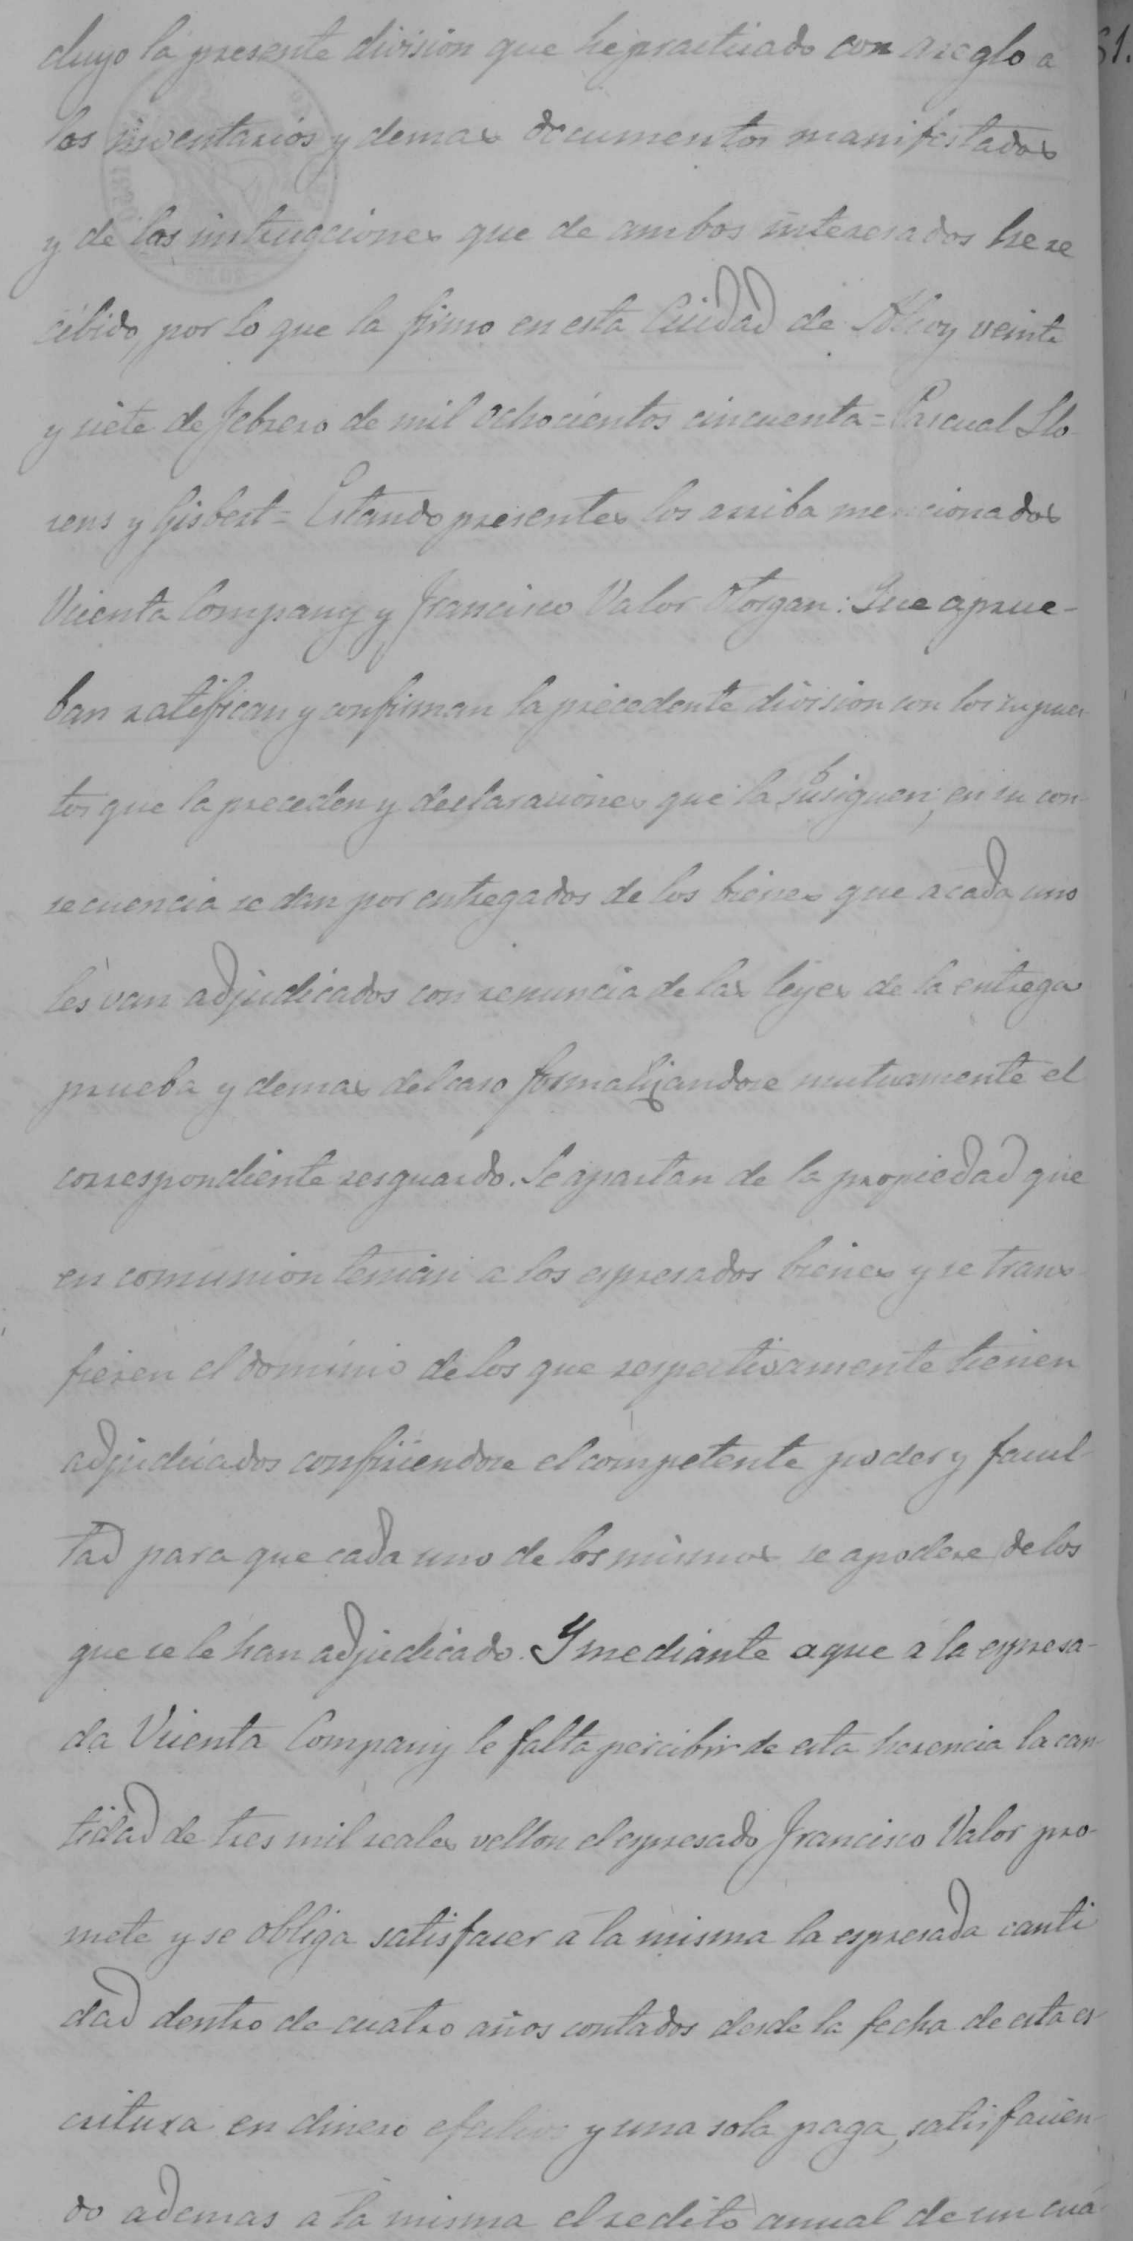 cluyo la presente división que he practicado con areglo a
los inventarios y demas documentos manifestados
y de las instrucciones que de ambos interesados he re
cibido, por lo que la firmo en esta Ciudad de Alcoy veinte
y siete de febrero de mil ochocientos cincuenta = Pascual Llo-
rens y Gisbert = Estando presentes los arriba mencionados
Vicenta Company y Francisco Valor Otorgan: Que aprue-
ban ratifican y confirman la precedente division con los supues
tos que la preceden y declaraciones que la subsiguen, en su con-
secuencia se dan por entregados de los bienes que a cada uno
les van adjudicados con renuncia de las leyes de la entrega
prueba y demas del caso formalizandose mutuamente el
correspondiente resguardo. Se apartan de la propiedad que
en comunion tenian a los espresados bienes y se trans
fieren el dominio de los que respectivamente tienen
adjudicados confiriendose el competente poder y facul
tad para que cada uno de los mismos se apodere de los
que se le han adjudicado. Y mediante a que a la espresa-
da Vicenta Company le falta percibir de esta herencia la can-
tidad de tres mil reales vellon el espresado Francisco Valor pro-
mete y se obliga satisfacer a la misma la espresada canti
dad dentro de cuatro años contados desde la fecha de esta es-
critura en dinero efectivo y una sola paga, satisfacien-
do ademas a la misma el redito anual de un cua-